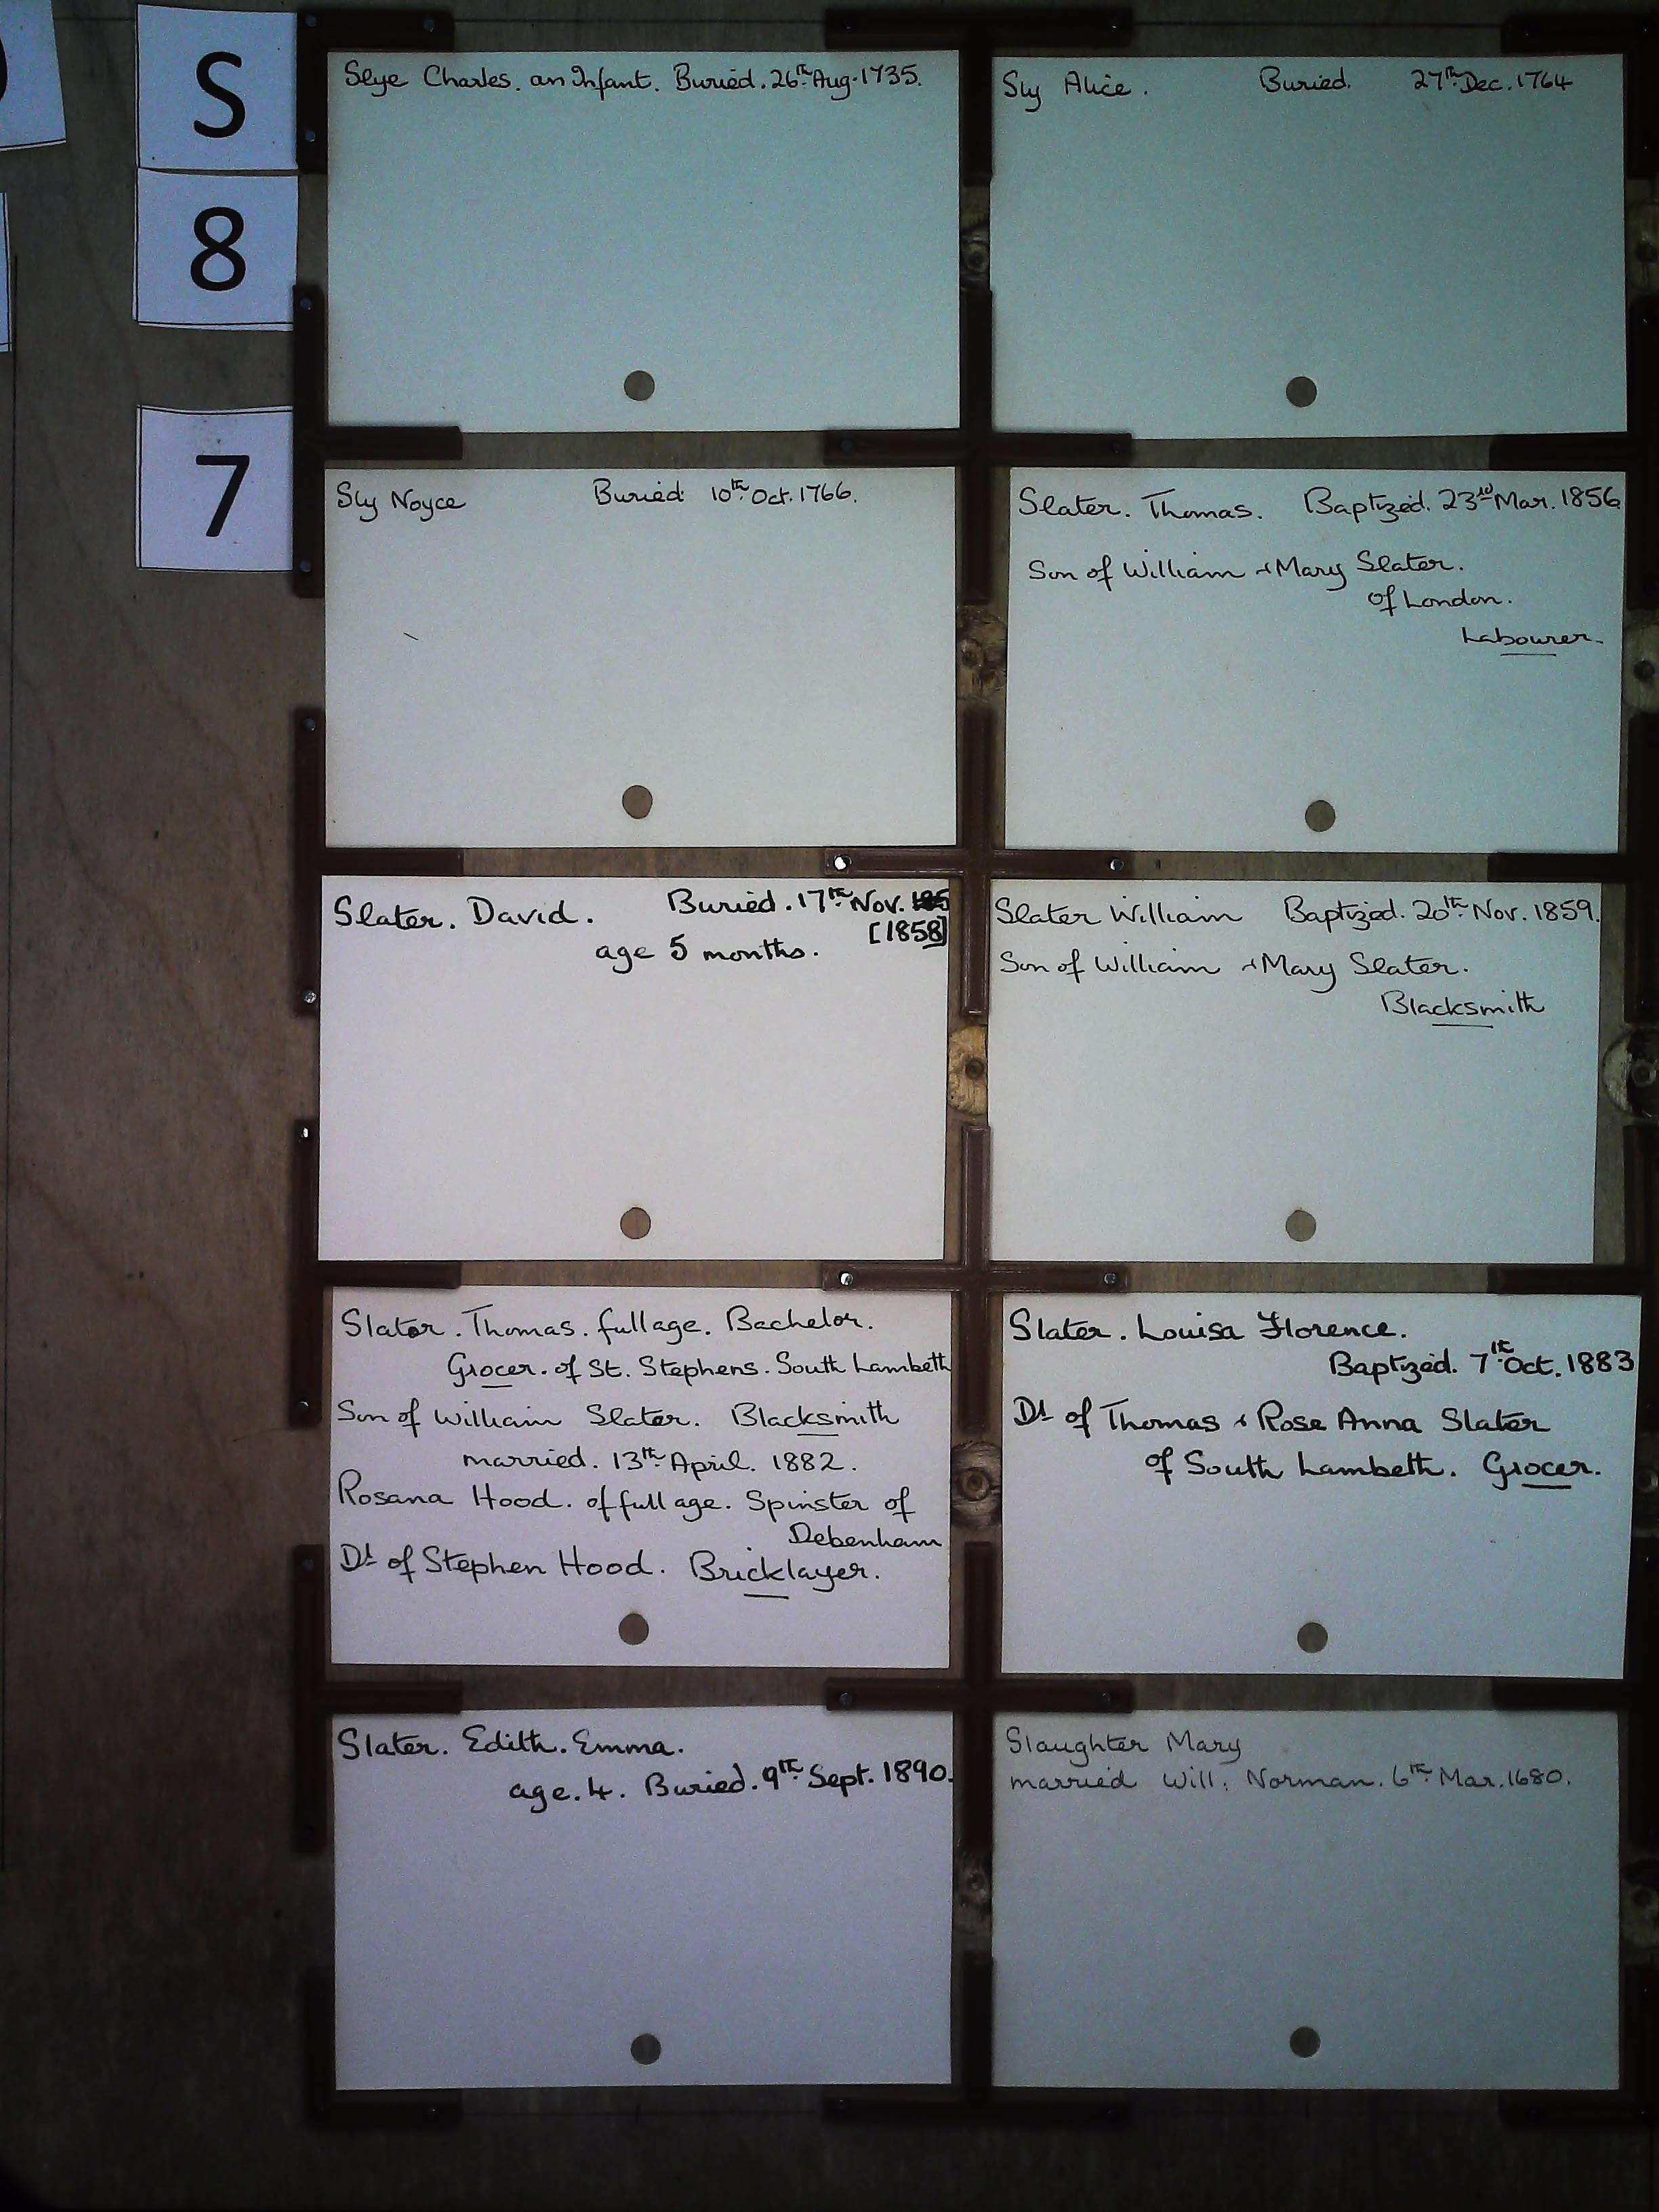 S
8
7
Slye Charles. an Infant. Buried. 26th Aug. 1735.
Sly Alice. Buried. 27th Dec. 1764
Sly Noyce Buried 10th Oct. 1766.
Slater. Thomas. Baptized. 23rd Mar. 1856
Son of William & Mary Slater.
of London.
Labourer.
Slater. David. Buried. 17th Nov. 185
[1858]
age 5 months.
Slater William Baptized. 20th Nov. 1859.
Son of William & Mary Slater.
Blacksmith
Slater. Thomas. full age. Bachelor.
Grocer. of St. Stephens. South Lambeth
Son of William Slater. Blacksmith
married. 13th April. 1882.
Rosana Hood. of full age. Spinster of
Debenham
Dt of Stephen Hood. Bricklayer.
Slater. Louisa Florence.
Baptized. 7th Oct. 1883
Dt of Thomas & Rose Anna Slater
of South Lambeth. Grocer.
Slater. Edith. Emma.
age. 4. Buried. 9th Sept. 1890.
Slaughter Mary
married Will: Norman. 6th Mar. 1680.